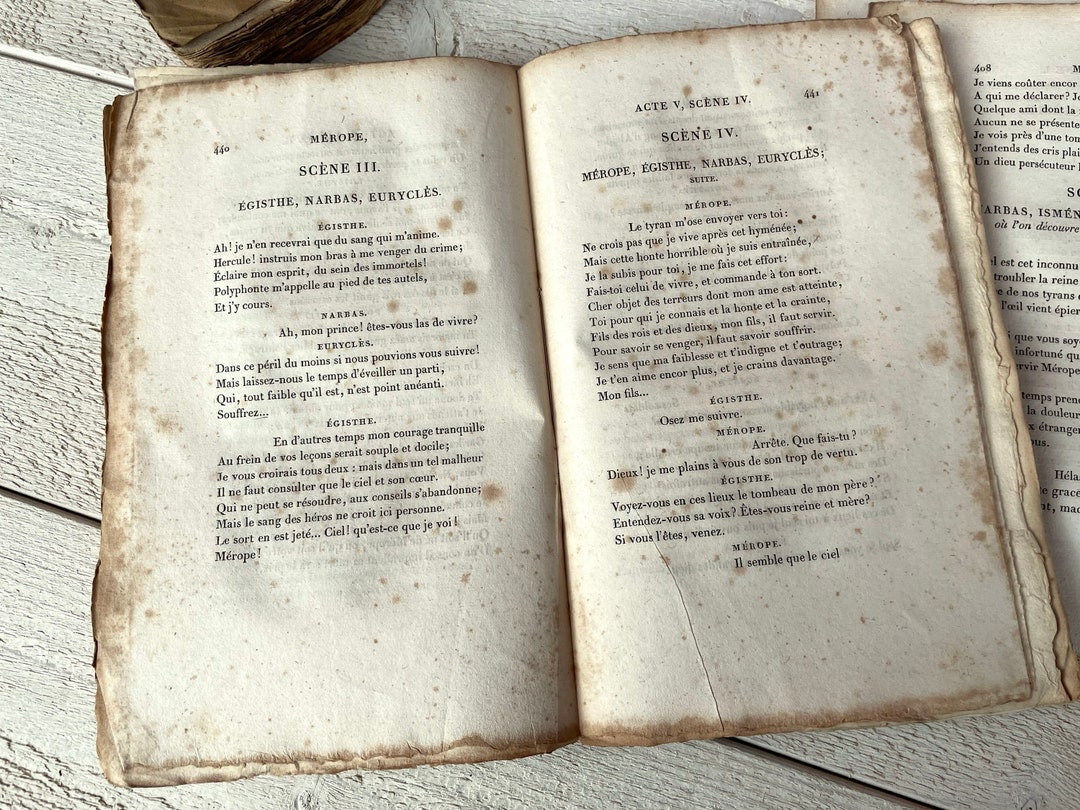 440
MÉROPE,
SCÈNE III.
ÉGISTHE, NARBAS, EURYCLÈS.
ÉGISTHE.
Ah! je n'en recevrai que du sang qui m'anime.
Hercule! instruis mon bras à me venger du crime;
Éclaire mon esprit, du sein des immortels!
Polyphonte m'appelle au pied de tes autels,
Et j'y cours.
NARBAS.
Ah, mon prince! êtes-vous las de vivre?
EURYCLÈS.
Dans ce péril du moins si nous pouvions vous suivre!
Mais laissez-nous le temps d'éveiller un parti,
Qui, tout faible qu'il est, n'est point anéanti.
Souffrez...
ÉGISTHE.
En d'autres temps mon courage tranquille
Au frein de vos leçons serait souple et docile;
Je vous croirais tous deux: mais dans un tel malheur
Il ne faut consulter que le ciel et son cœur.
Qui ne peut se résoudre, aux conseils s'abandonne;
Mais le sang des héros ne croit ici personne.
Le sort en est jeté... Ciel! qu'est-ce que je voi!
Mérope!
ACTE V, SCÈNE IV.
441
SCÈNE IV.
MÉROPE, ÉGISTHE, NARBAS, EURYCLÈS;
SUITE.
MÉROPE.
Le tyran m'ose envoyer vers toi:
Ne crois pas que je vive après cet hyménée;
Mais cette honte horrible où je suis entraînée,
Je la subis pour toi, je me fais cet effort:
Fais-toi celui de vivre, et commande à ton sort.
Cher objet des terreurs dont mon ame est atteinte,
Toi pour qui je connais et la honte et la crainte,
Fils des rois et des dieux, mon fils, il faut servir.
Pour savoir se venger, il faut savoir souffrir.
Je sens que ma faiblesse et t'indigne et t'outrage;
Je t'en aime encor plus, et je crains davantage.
Mon fils...
ÉGISTHE.
Osez me suivre.
MÉROPE.
Arrête. Que fais-tu?
Dieux! je me plains à vous de son trop de vertu.
ÉGISTHE.
Voyez-vous en ces lieux le tombeau de mon père?
Entendez-vous sa voix? Êtes-vous reine et mère?
Si vous l'êtes, venez.
MÉROPE.
Il semble que le ciel
408
Je viens coûter encor
A qui me déclarer?
Quelque ami dont la
Aucun ne se présente
Je vois près d'une
J'entends des cris
Un dieu persécuteur
où l'on découvre
est cet inconnu
troubler la reine
de nos tyrans
l'œil vient épier
que vous
infortuné
Mérope
temps
la douleur
étranger